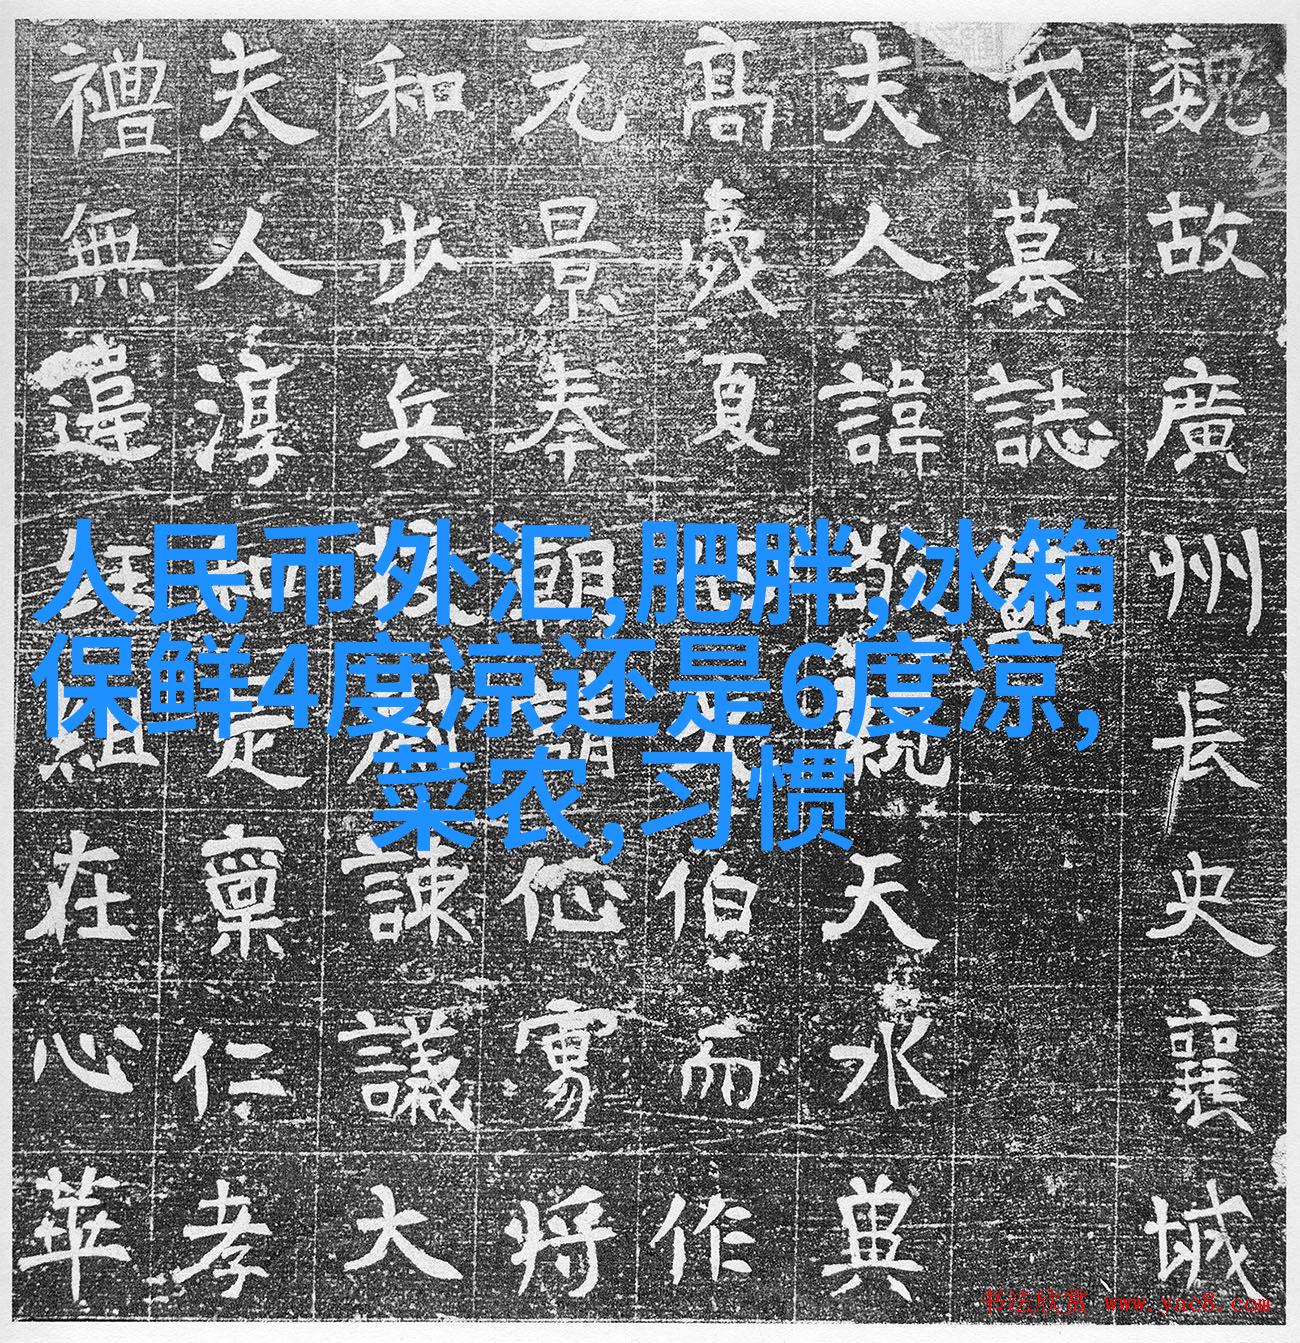 人民币外汇,肥胖,冰箱
保鲜4度凉还是6度凉,
菜农,习惯
魏故廣州長史襄城
氏墓誌
夫人諱親天水
高夏伯而作
元景奉朝請将
和步兵校諫議大
夫人淳和定稟仁孝
禮無違組在心華
书法欣赏 www.yac8.com